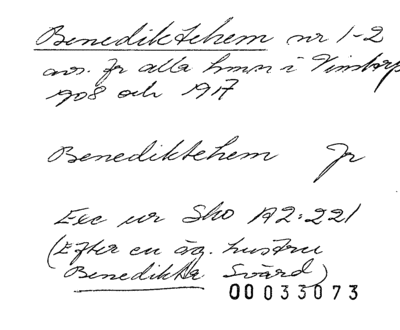 Benediktehem nr 1-2
avs. fr alla hmn i Vintorp
1908 och 1917
Benediktehem Jr
Exc ur Sko A2:221
(Efter en äg. hustru
Benedikta Svärd)
00033073